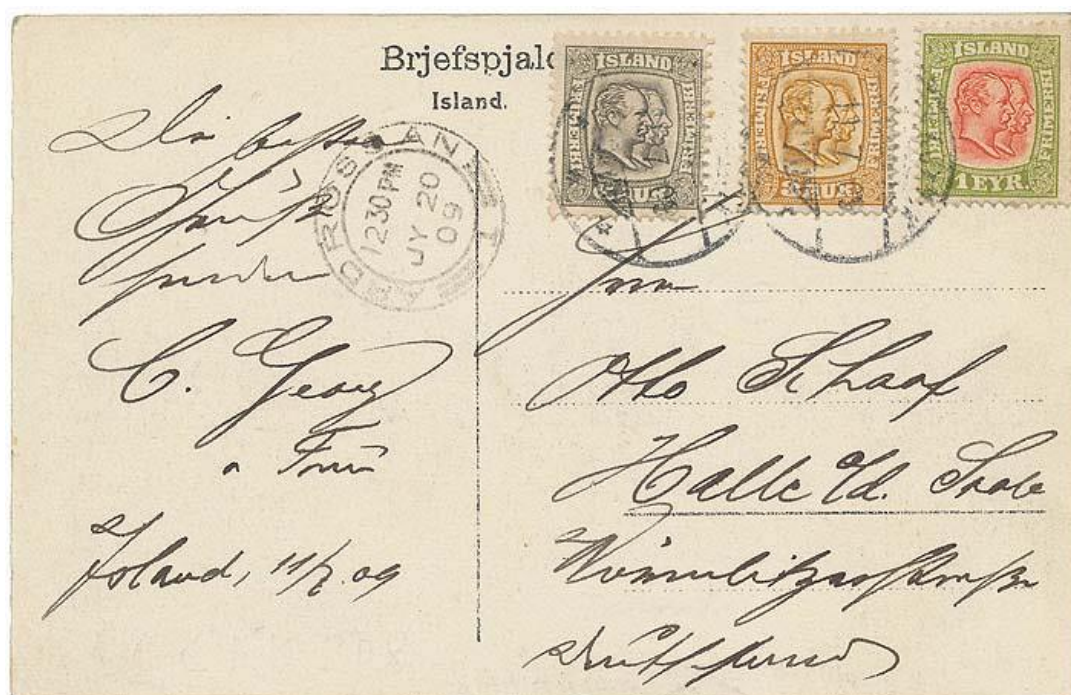 Brjefspjald
Island.
ÍSLAND
ÍSLAND
ÍSLAND
1 EYR.
ARDROSSAN
12 30 PM
JY 20
09
Die besten
Grüße
senden
C. Georg
u Frau
Island, 11/7.09
Herrn
Otto Schaaf
Halle a/d. Saale
Wörmlitzerstraße
Deutschland